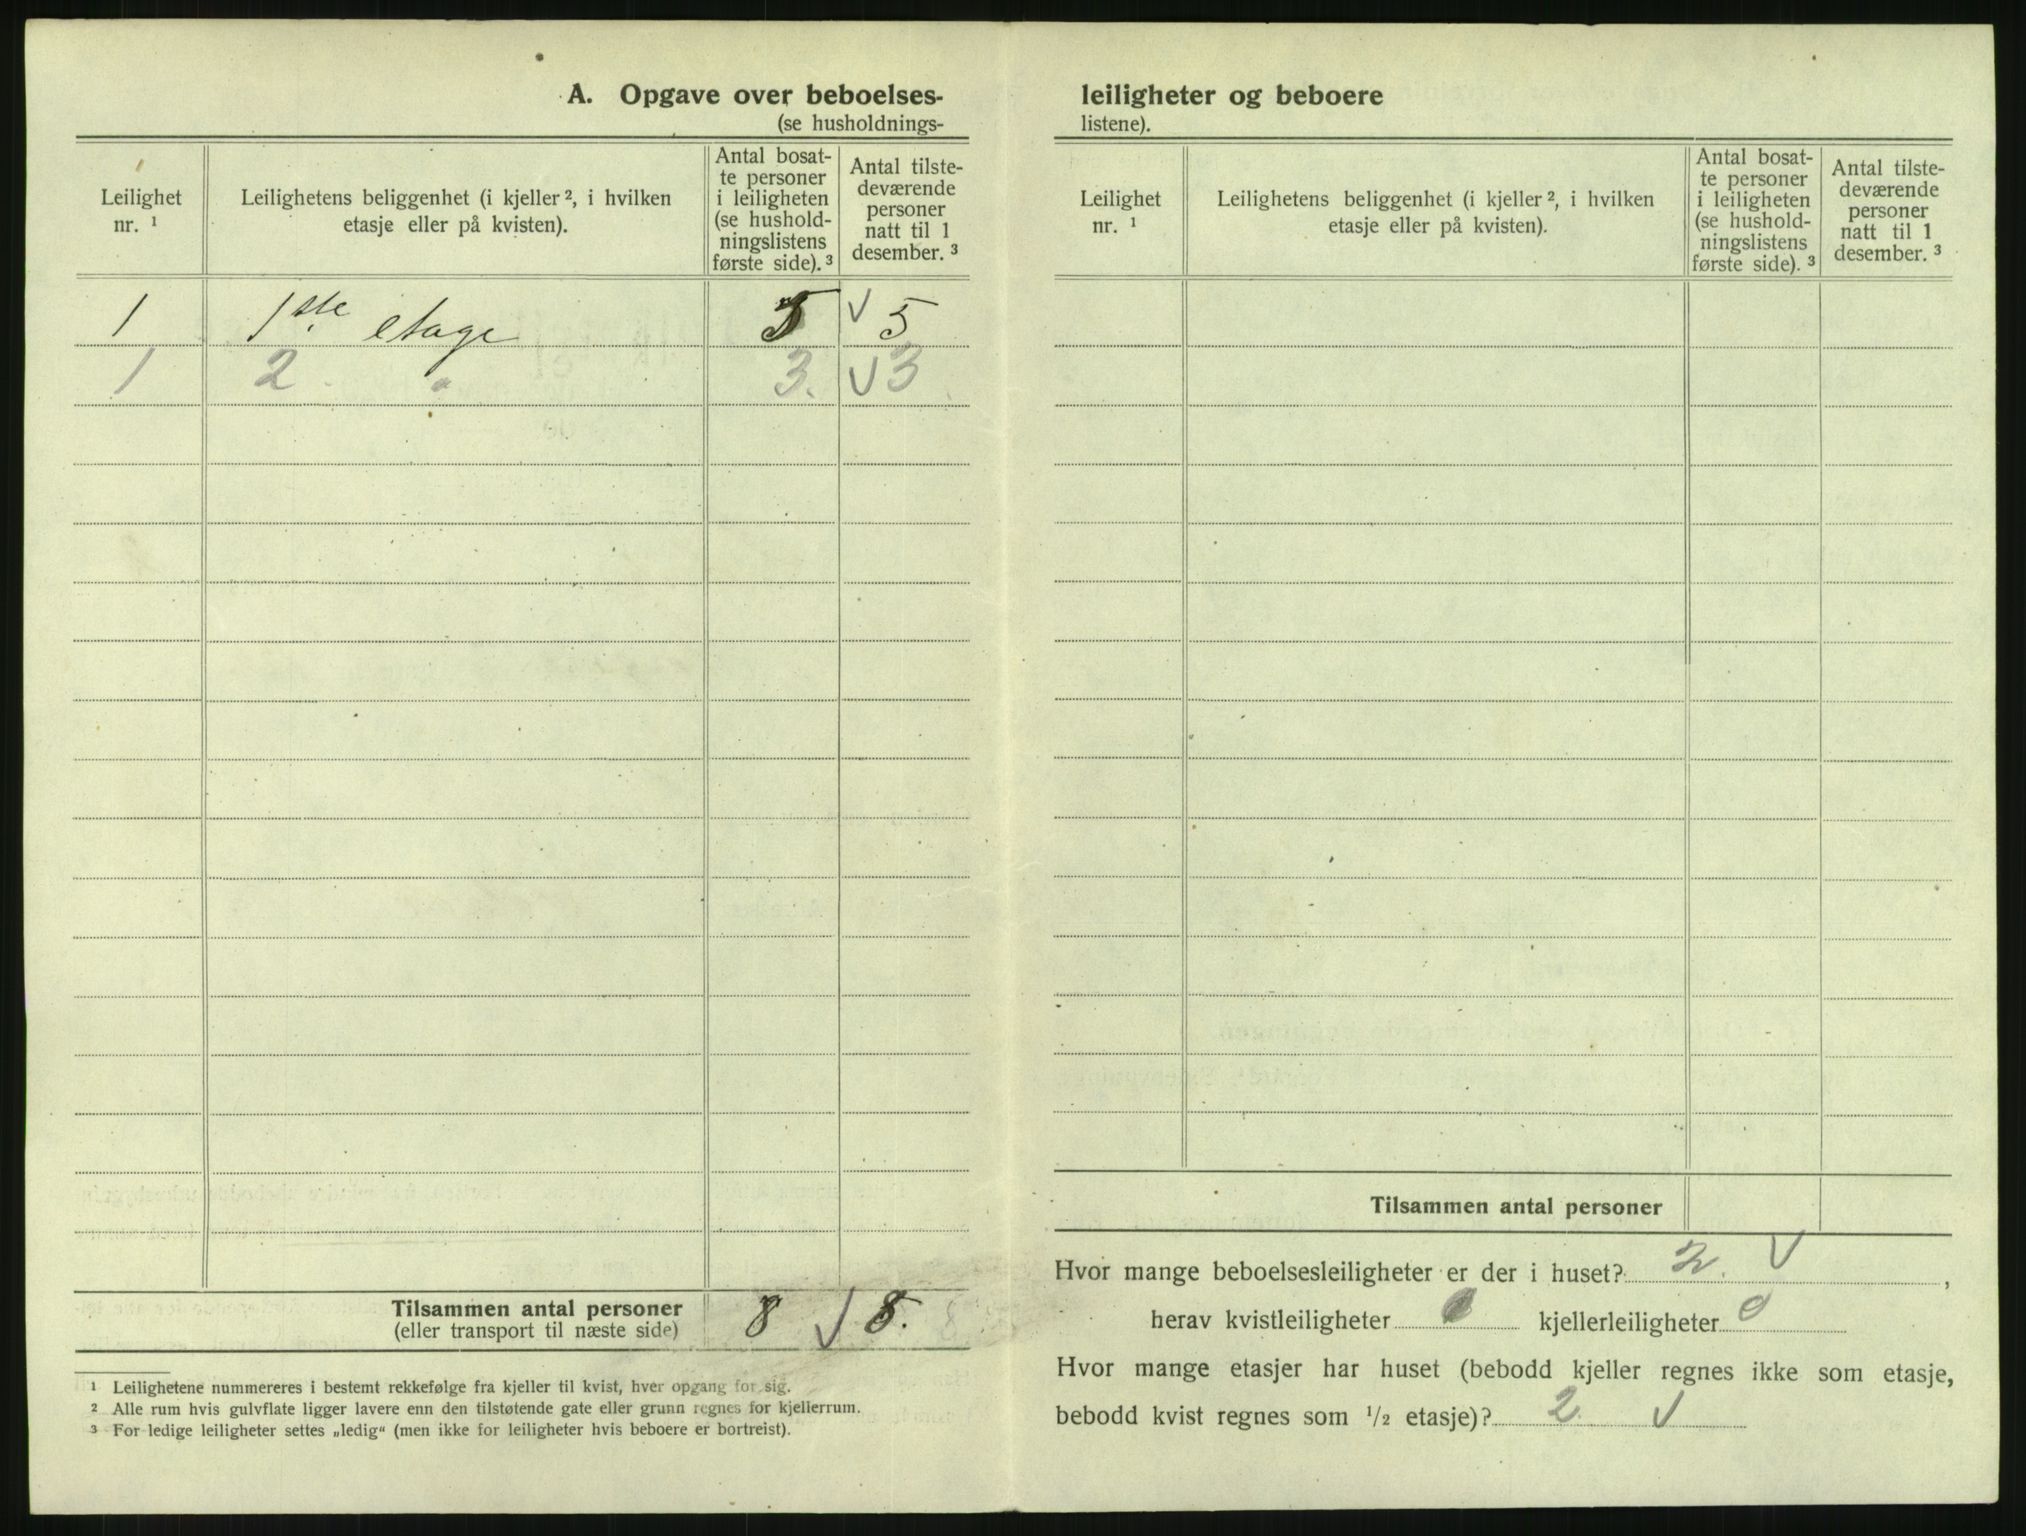 A. Opgave over beboelses-
(se husholdnings-
Leilighet
nr. ¹
Leilighetens beliggenhet (i kjeller ², i hvilken
etasje eller på kvisten).
Antal bosat-
te personer
i leiligheten
(se hushold-
ningslistens
første side). ³
Antal tilste-
deværende
personer
natt til 1
desember. ³
1 1ste etage 5 √ 5
1 2 " 3. √ 3
Tilsammen antal personer
(eller transport til næste side)
8 √ 8.
¹ Leilighetene nummereres i bestemt rekkefølge fra kjeller til kvist, hver opgang for sig.
² Alle rum hvis gulvflate ligger lavere enn den tilstøtende gate eller grunn regnes for kjellerrum.
³ For ledige leiligheter settes „ledig“ (men ikke for leiligheter hvis beboere er bortreist).
leiligheter og beboere
listene).
Leilighet
nr. ¹
Leilighetens beliggenhet (i kjeller ², i hvilken
etasje eller på kvisten).
Antal bosat-
te personer
i leiligheten
(se hushold-
ningslistens
første side). ³
Antal tilste-
deværende
personer
natt til 1
desember. ³
Tilsammen antal personer
Hvor mange beboelsesleiligheter er der i huset? 2. √ ,
herav kvistleiligheter 0 kjellerleiligheter 0
Hvor mange etasjer har huset (bebodd kjeller regnes ikke som etasje,
bebodd kvist regnes som ½ etasje)? 2. √